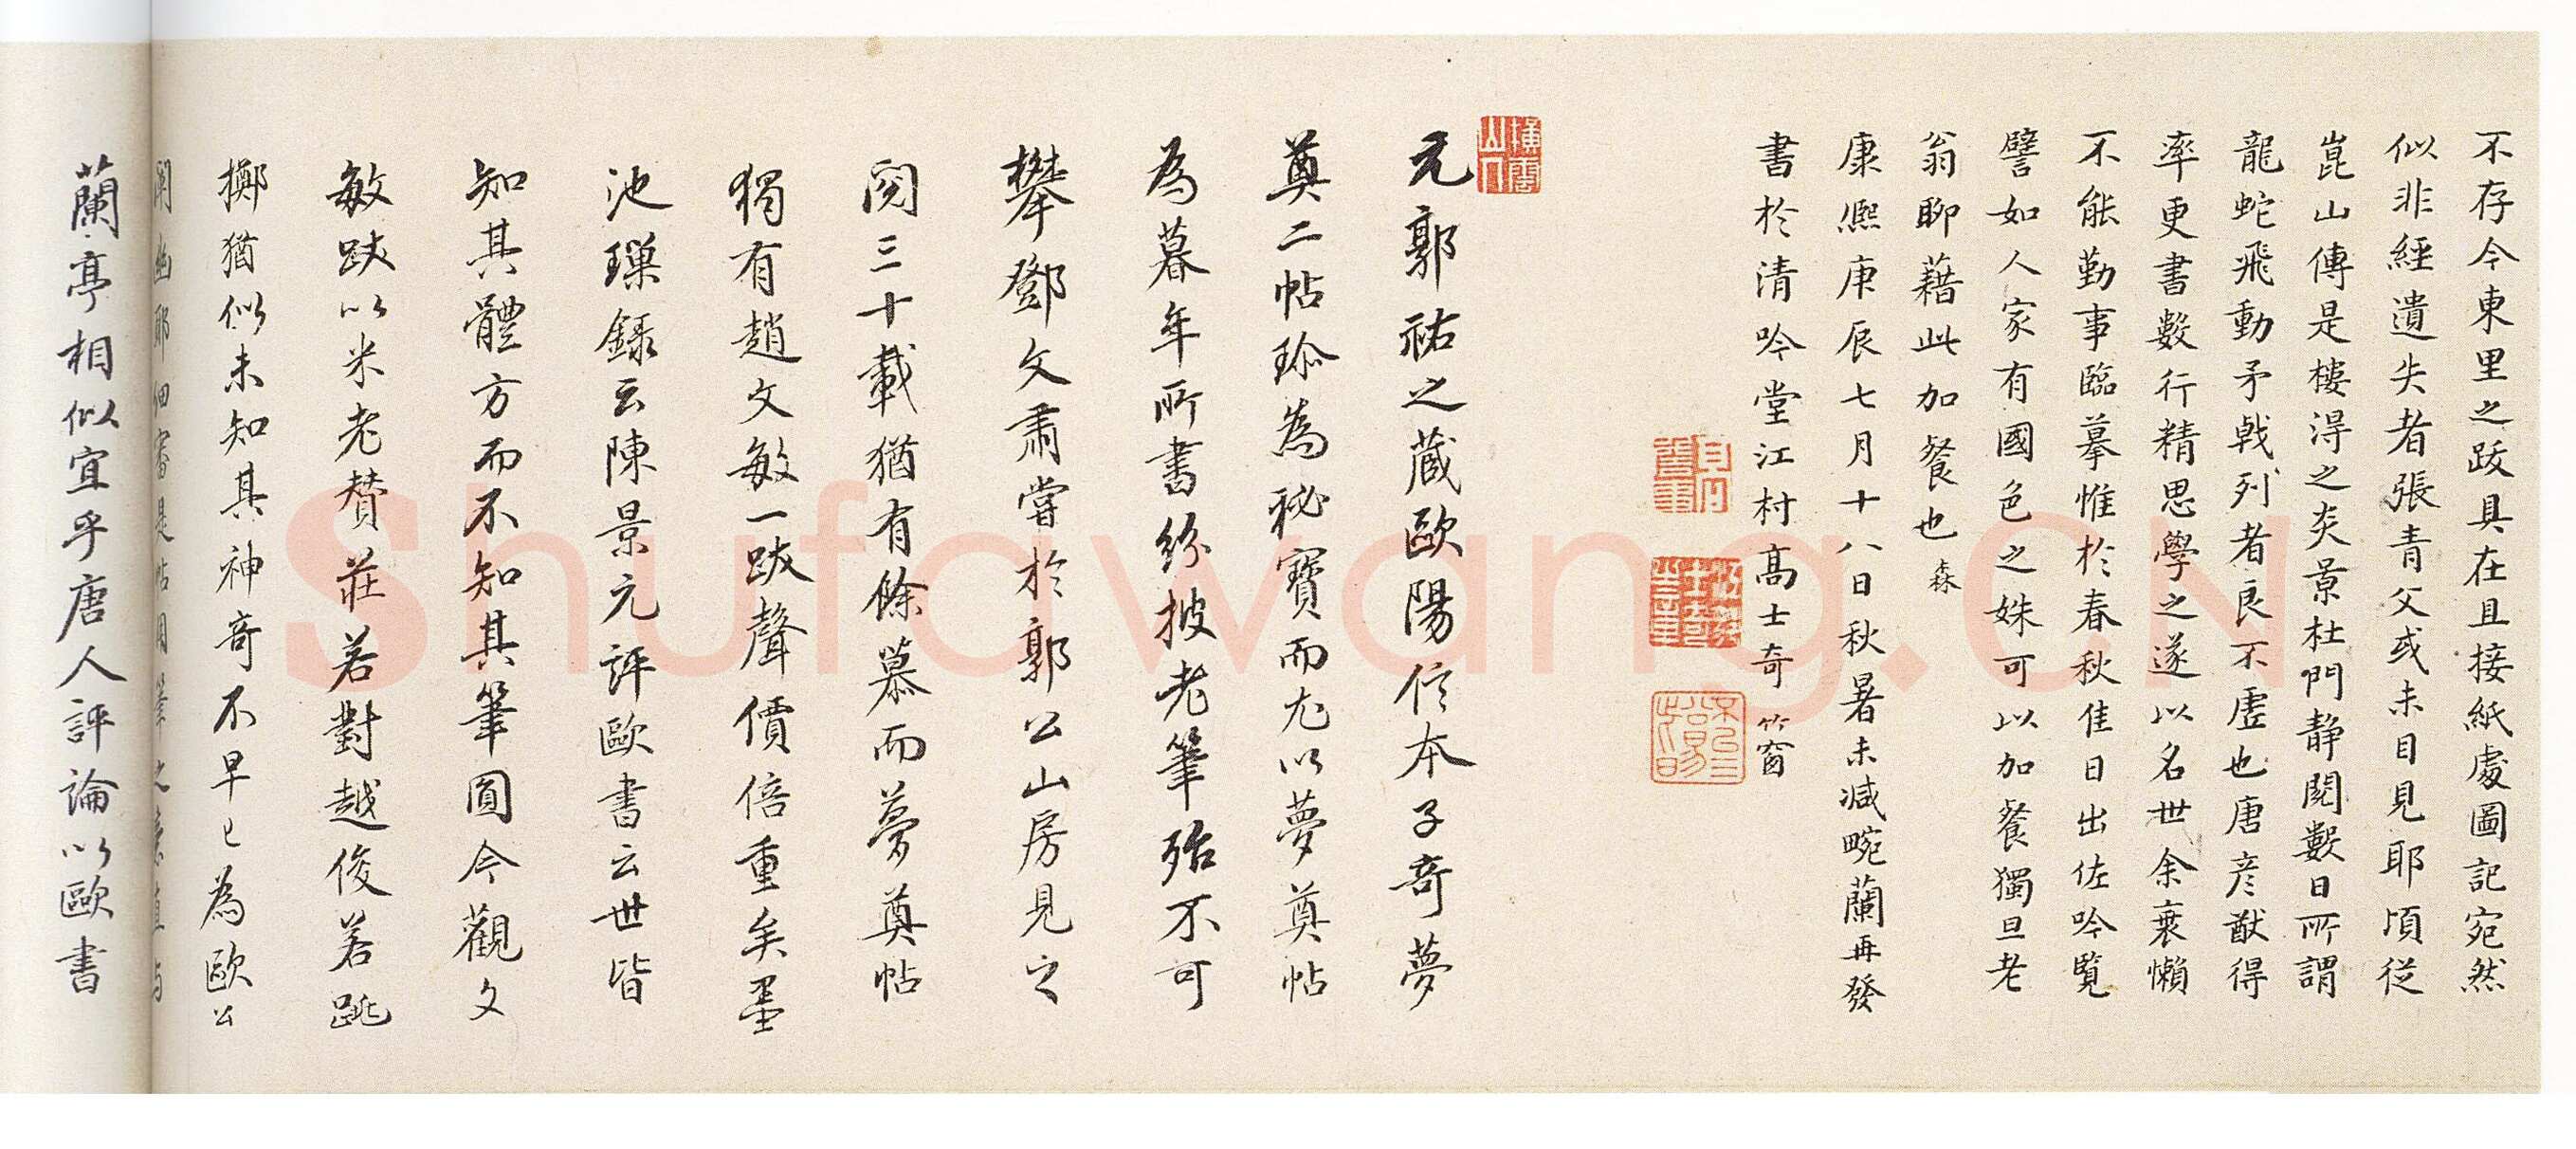 不存今東里之跋具在且接紙處圖記宛然
似非經遺失者張青父或未目見耶頃從
崑山傳是樓得之炎景杜門静閱數日所謂
龍蛇飛動矛戟列者良不虛也唐彦猷得
率更書數行精思學之遂以名世余衰懶
不能勤事臨摹惟於春秋佳日出佐吟覧
譬如人家有國色之姝可以加餐獨旦老
翁聊藉此加餐也 森
康熙庚辰七月十八日秋暑未减畹蘭再發
書於清吟堂江村高士奇 竹窗
橫雲山人
元郭祐之蔵歐陽信本子奇夢
奠二帖珎為祕寶而尤以夢奠帖
為暮年所書紛披老筆殆不可
攀鄧文肅嘗於郭公山房見之
閱三十載猶有餘慕而夢奠帖
獨有趙文敏一跋聲價倍重矣墨
池璅録云陳景元評歐書云世皆
知其體方而不知其筆圓今觀文
敏跋以米老賛莊若對越俊若跳
擲猶似未知其神奇不早已為歐公
闡幽耶細審是帖用筆之意直与
蘭亭相似宜乎唐人評論以歐書
Shufawang.CN